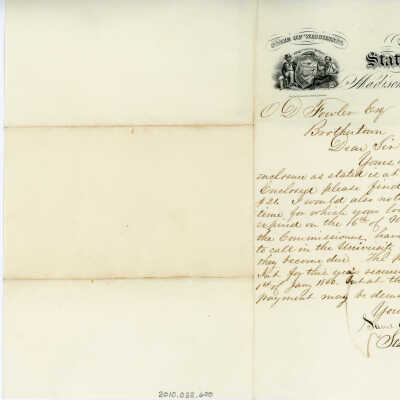 STATE OF WISCONSIN
Stat
Madison
O D Fowler Esq
Brothertown
Dear Sir
Yours
enclosure as stated is at
Enclosed please find
$21. I would also not
time for which your loa
expired on the 16th of
the Commissioners have
to call in the University
they become due. The
for this year
1st of Jany 1866. but at th
payment may be dema
You
2010.022.600